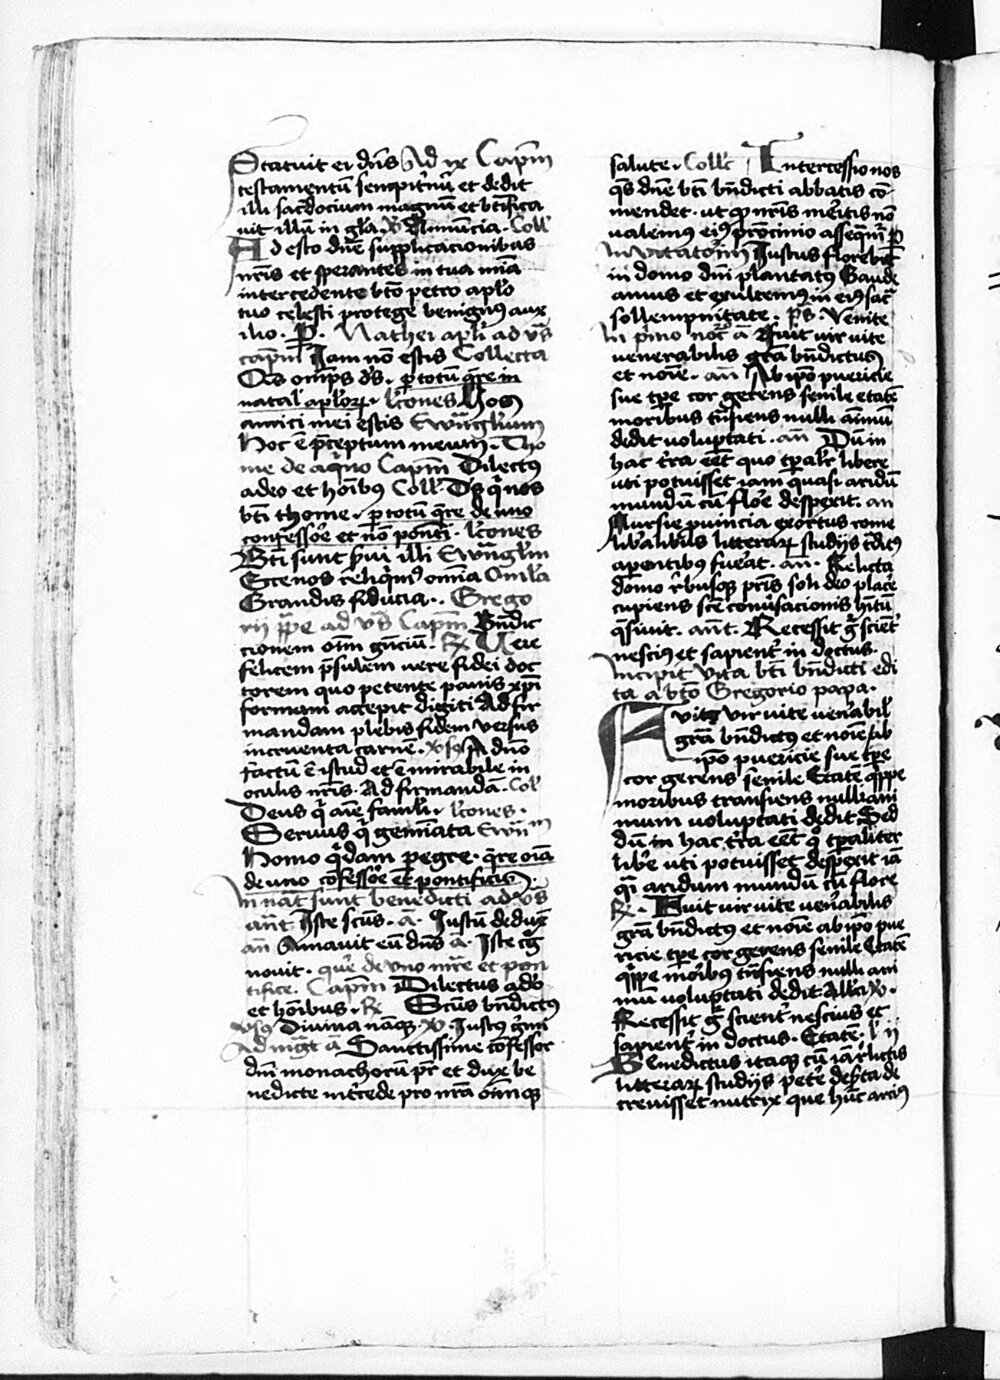 Statuit ei dn̄s Ad ix Capm̄
testamentū sempit'nū et dedit
illi sac̄docium magnū et btīfica
uit illū in gl'a. V Annuncia. Coll'
Adesto dn̄e supplicacionibus
nr̄is et sperantes in tua mīa
intercedente btō petro aplō
tuo celesti protege benignus aux
ilio. P. Mathei apl'i ad vs̄
capm̄ Iam nō estis Collecta
Ōs omps ds̄. p totū q̄re in
natal' aplorꝝ. lc̄ones Hos
amici mei estis Ewāgl'ium
Hoc ē p̄ceptum meum. Tho
me de aq̄no Capm̄ Dilectus
adeo et hoībus Coll' Ds̄ q̄ nos
btī thome. p totū q̄re de uno
confessoē et nō pontī. lc̄ones
Btī sunt s̄ui illi Ewāgl'm
Ecce nos reliq̄mꝰ omīa Omīl'a
Grandis fiducia. Grego
rii pp̄e ad vs̄ Capm̄ Bn̄dic
cionem om̄ gn̄ciū. R Vere
felicem p̄sulem uere fidei doc
torem quo petente panis xp̄i
formam accepit digiti Ad fir
mandam plebis fidem versus
incruenta carnē. vsꝰ A dn̄o
factū ē istud et ē mirabile in
oculis nr̄is. Ad firmandā. Col'
Deus q̄ aīe famul'i. lc̄ones.
Servus q̄ geminata Ewām
Homo q̄dam pegre. q̄re oīa
de uno cōfessoē et pontificis.
In nāt sunt benedicti ad vs̄
an̄t Iste scūs. a. Iustū deduxͭ
an̄ Amauit eū dn̄s ā. Iste cḡ
nouit. que' de uno mr̄e et pon
tifice. Capm̄ Dilectus adeo
et hoībus. R Scūs bn̄dictus
vsꝰ Divina nāqꝫ V. Iustus ḡmi
Ad mḡt ā Sanctissime cōfessor
dn̄i monachorū pr̄ et dux be
nedicte int'cede pro nrā om̄iqꝫ
salute. Coll'c Intercessio nos
qs̄ dn̄e btī bn̄dicti abbatis cō
mendet. ut qd nr̄is me'itis nō
ualemus eiꝰ pᵒcinio asseq̄mr̄ P
Invitatoriū Iustus florebit
in domo dn̄i plantatus Gaude
amus et exultemus in eiꝰ sac̄
sollempnitate. ps̄. Venite
In pᵒmo noc̄ ā Fuit vir uite
venerabilis grā bn̄dictus
et noīe. an̄ Ab ipō puericie
sue tp̄e cor gerens senile etatē
moribus tn̄siens nulli animū
dedit voluptati. an̄ Dū in
hac t'ra eēt quo tp̄al'r libere
uti potuisset iam quasi aridū
mundū cū flo'e despexit. an
Nursie puincia exortus rome
lib'alibus litterarꝝ studijs t'dit'
apentibus fue'at. an̄. Relicta
domo r'busqꝫ pr̄is soli deo place'
cupiens scē conu'sacionis hītū
q̄siuit. an̄t. Recessit ḡ scient'
nescius et sapient' indoctus.
Incipit vita btī bn̄dicti edi
ta a btō Gregorio papa.
Fuit vir uite ven'abil'
grā bn̄dictus et noīe ab
ipō puericie sue tp̄e
cor gerens senile Etatē q̄ppe
moribus transiens nulli ani
mum voluptati dedit Sed
dū in hac t'ra eēt qᵒ tp̄aliter
lib'e uti potuisset despexit iā
q̄i aridum mundū cū flore
R. Fuit vir uite ven'abilis
grā bn̄dictus et noīe ab ipō pue
ricie tp̄e cor gerens senile Etatē
q̄ppe mō'ibus tn̄siens nulli ani
mū voluptati dedit. All'a V.
Recessit ḡ scient' nescius et
sapient' indoctus. Etatē. l' ij
Benedictus itaqꝫ cū iā r'lictis
litterarꝝ studijs pete' des'ta de
creuisset nutrix que hūc arciꝰ